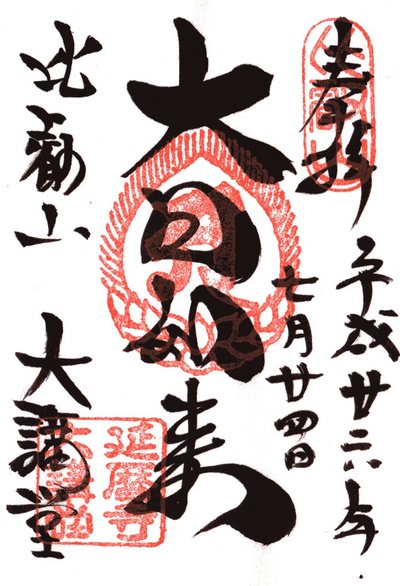 奉拝
平成廿六年
七月廿四日
大日如来
比叡山
大講堂
延暦寺
大講堂